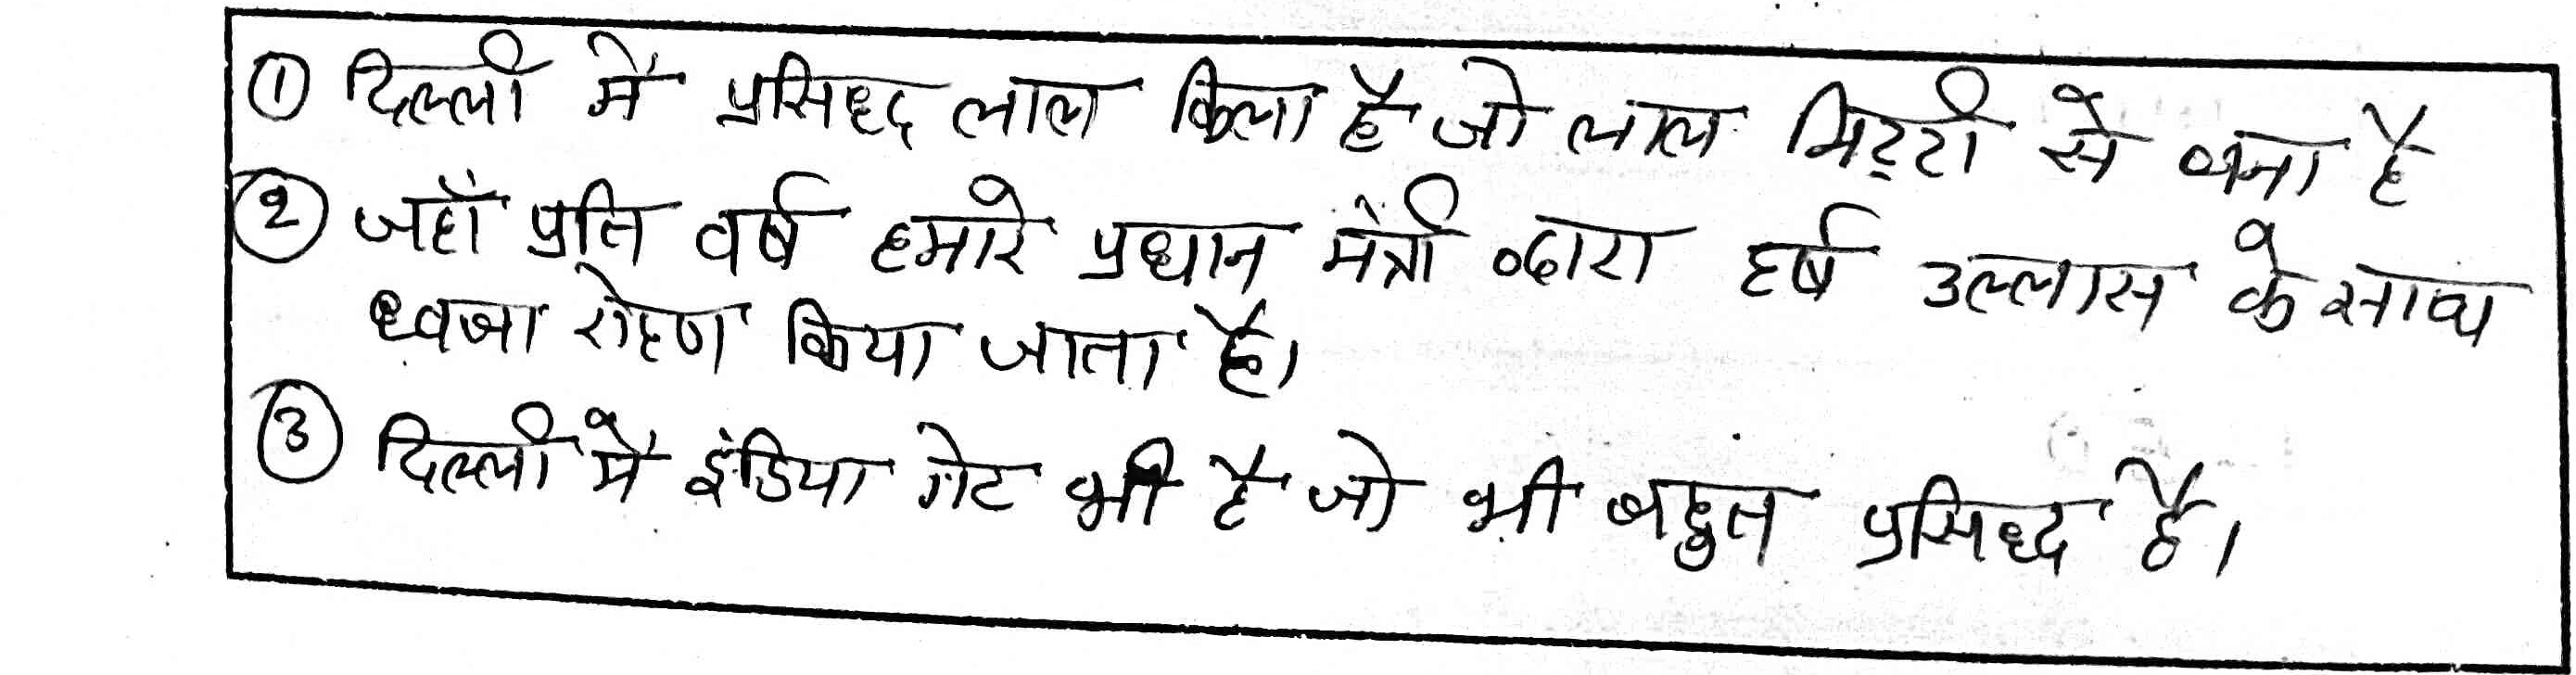 ① दिल्ली में प्रसिध्द लाल किला है जो लाल मिट्टी से बना है
② जहाँ प्रति वर्ष हमारे प्रधान मंत्री व्दारा हर्ष उल्लास के साथ
ध्वजा रोहण किया जाता है।
③ दिल्ली में इंडिया गेट भी है जो भी बहुत प्रसिध्द है।